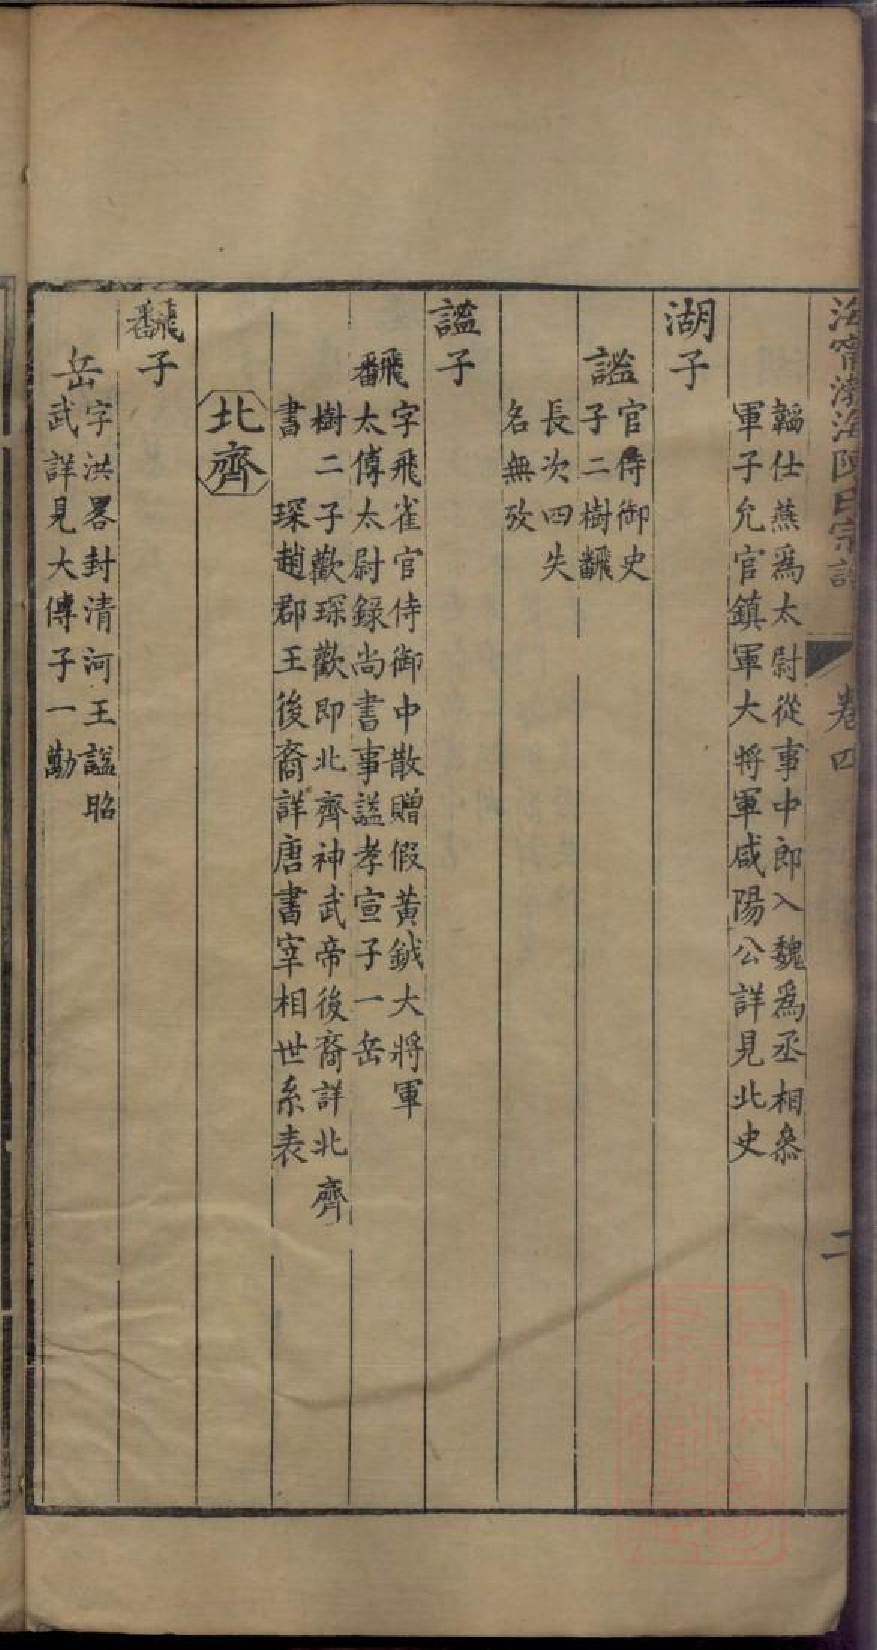 海寧渤海陳氏宗譜
卷四
二
韜仕燕爲太尉從事中郎入魏爲丞相叅
軍子允官鎮軍大將軍咸陽公詳見北史
湖子
謐
官侍御史
子二樹飜
長次四失
名無攷
謐子
飜
字飛雀官侍御中散贈假黃鉞大將軍
太傅太尉錄尚書事謚孝宣子一岳
樹二子歡琛歡即北齊神武帝後裔詳北齊
書 琛趙郡王後裔詳唐書宰相世系表
北齊
飜子
岳
字洪畧封清河王謚昭
武詳見大傳子一勱